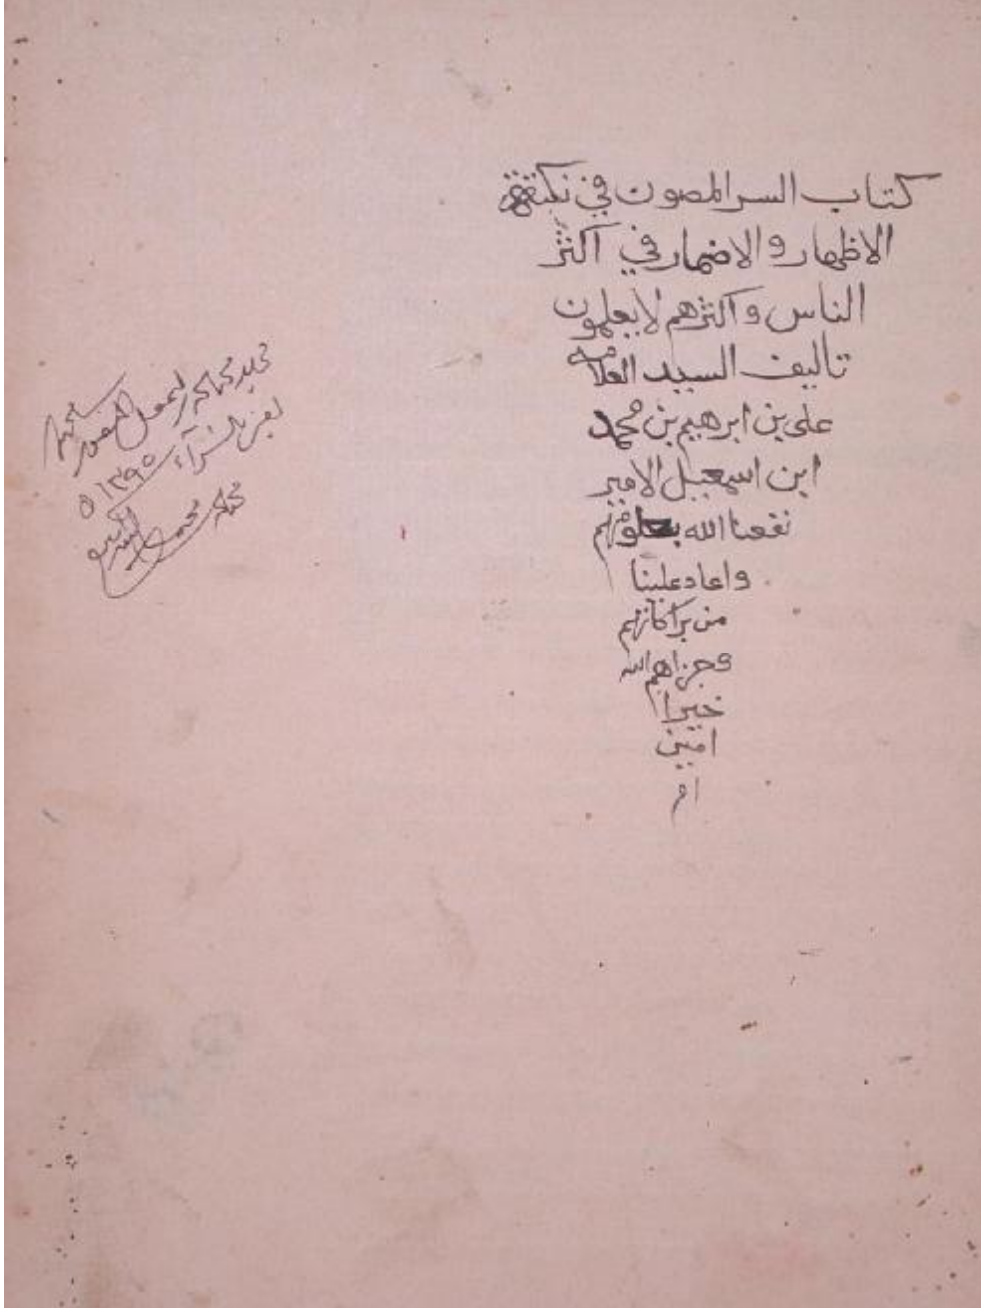 كتاب السر المصون في نكتة
الاظهار والاضمار في اكثر
الناس واكثرهم لا يعلمون
تاليف السيد العلامه
علي بن ابرهيم بن محمد
ابن اسمعيل الامير
نفعنا الله بعلومهم
واعاد علينا
من براكاتهم
وجزاهم الله
خيرا
امين
ام
المنصور
بالشراء ١٣٩٥
محمد